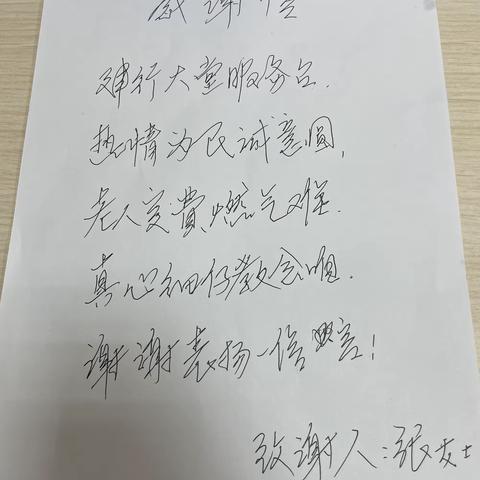 感谢信
建行大堂服务台.
热情为民诚意圆,
老人交费燃气难.
真心细仔教会顺.
谢谢表扬一信言!
致谢人:张女士